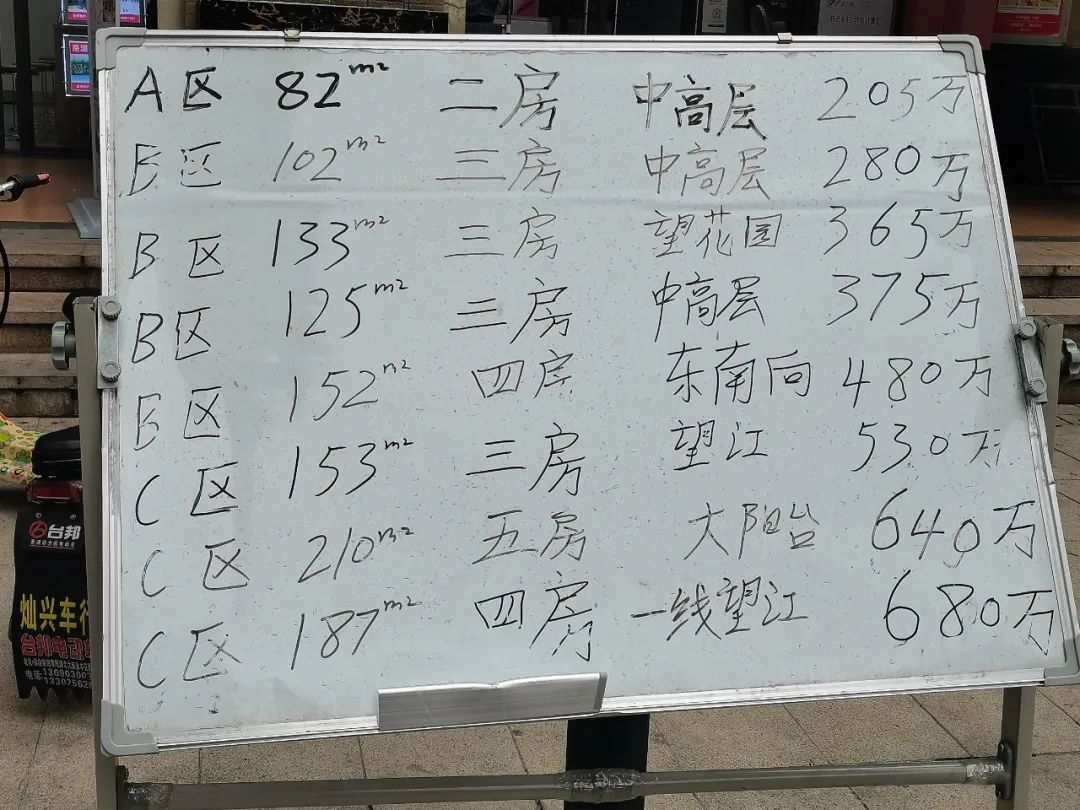 A区 82m² 二房 中高层 205万
E区 102m² 三房 中高层 280万
B区 133m² 三房 望花园 365万
B区 125m² 三房 中高层 375万
E区 152m² 四房 东南向 480万
C区 153m² 三房 望江 530万
C区 210m² 五房 大阳台 640万
C区 187m² 四房 一线望江 680万
台邦
灿兴车行
台邦电动车